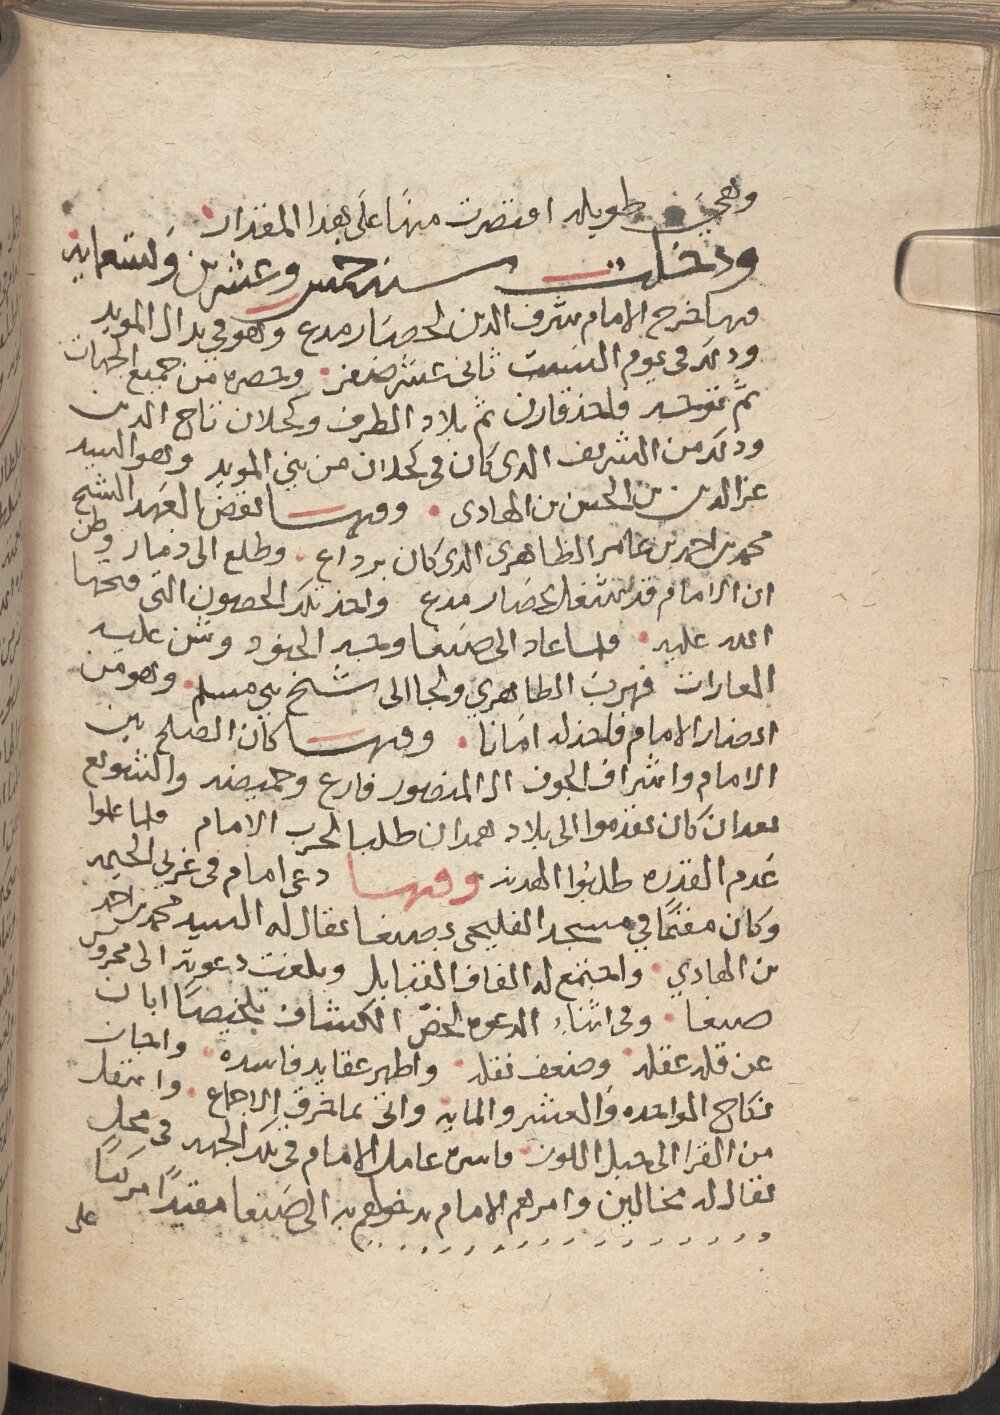 وهي طويله اقتصرت منها على هذا المقدار
ودخلت سنه خمس وعشرين وتسعمايه
فيها خرج الامام شرف الدين لحصار مدع وهو في يد ال المويد
وذلك في يوم السبت ثاني عشر صفر وحصره من جميع الجهات
ثم توجه فاخذ قارن ثم بلاد الطرف وكحلان تاج الدين
وذلك من الشريف الذي كان في كحلان من بني المويد وهو السيد
عز الدين بن الحسن بن الهادي وفيها نقض العهد الشيخ
محمد بن احمد بن عامر الطاهري الذي كان برداع وطلع الى ذمار وظن
ان الامام قد شغل بحصار مدع واخذ تلك الحصون التي فتحها
الله عليه فلما عاد الى صنعا وجه الجنود وشن عليه
الغارات فهرب الطاهري ولجا الى شيخ بني مسلم وهو من
انصار الامام فاخذ له امانا وفيها كان الصلح بين
الامام واشراف الجوف ال المنصور فارع وحميضه والشويع
بعد ان كان تقدموا الى بلاد همدان طلبا لحرب الامام فلما علموا
عدم القدره طلبوا الهدنه وفيها دعى امام في غربي الحيمه
وكان مقيما في مسجد الفليحي بصنعا يقال له السيد محمد بن احمد
بن الهادي واجتمع له الفاف القبايل وبلغت دعوته الى محروس
صنعا وفي اثناء الدعوه لخص الكشاف تلخيصا ابان
عن قله عقله وضعف نقله واظهر عقايد فاسده واجاز
نكاح الواحده والعشر والمايه واتى بما خرق الاجماع وانتقل
من القرا الى جبل اللوز فاسره عامل الامام في تلك الجهه في محل
يقال له مخالين وامرهم الامام بدخولهم به الى صنعا مقيدا مركبا
على